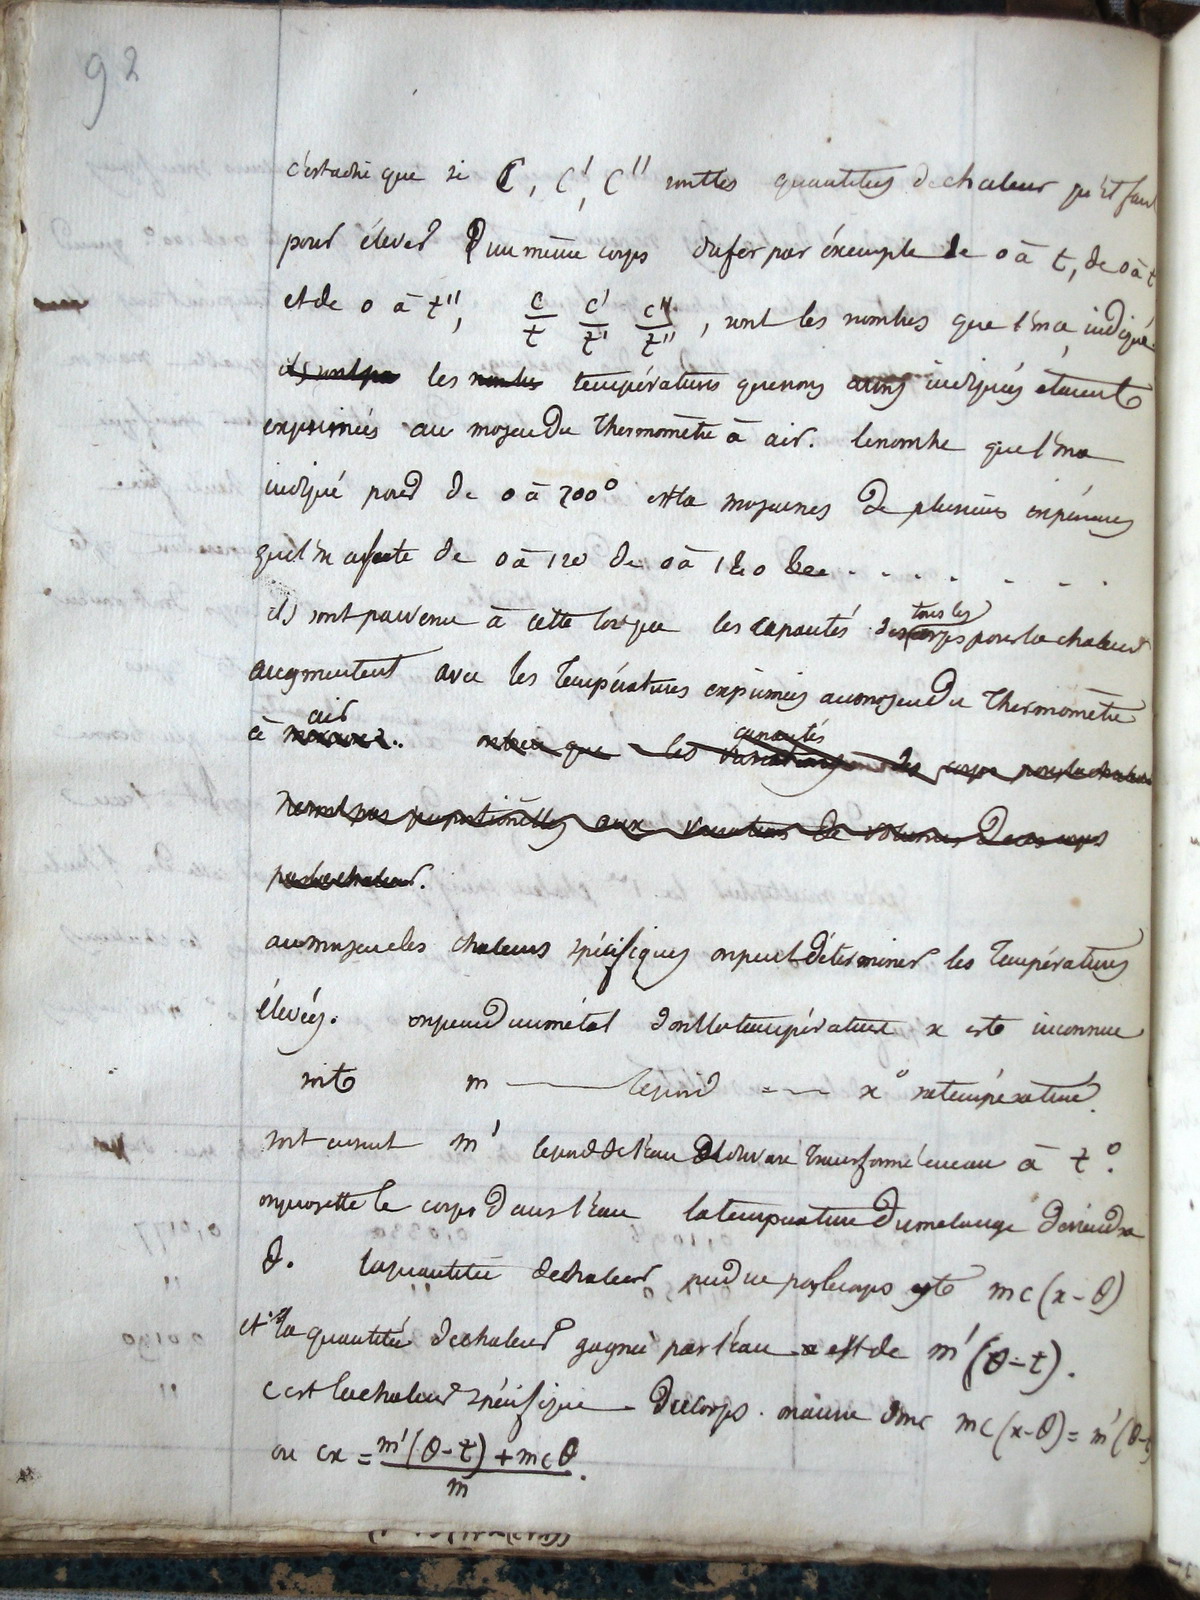 92
c'est a dire que si C, C', C'' sont les quantités de chaleur qu'il faut
pour élever d'un même corps du fer par éxemple de 0 à t, de 0 à t'
et de 0 à t'', C/t C'/t' C''/t'', sont les nombres que l'on a indiqué.
ils sont pa les nombres températures que nous avons indiquées étaient
exprimées au moyen du thermomètre à air. le nombre que l'on a
indiqué pour de 0 à 200° est la moyennes de plusieurs expériences
que l'on a faite de 0 à 120 de 0 à 180 . . . . . . .
ils sont parvenu à cette loi que les capacités des tous les corps pour la chaleur
augmentent avec les températures exprimées au moyen du thermomètre
à air. que les capacités des corps pour la chaleur
ne sont pas proportionelles aux variations de volumes de ces corps
par la chaleur.
au moyen des chaleurs spécifiques on peut déterminer les températures
élevées. on prend un métal dont la température x est inconnue
soit m — le poid — x° sa température.
soit ensuit m' le poid de l'eau transformé en eau à t°.
on projette le corps dans l'eau la température du melange deviendra
θ. la quantitée de chaleur perdue par le corps est mc(x-θ)
et la quantité de chaleur gagnée par l'eau est de m'(θ-t).
c est la chaleur spécifique du corps. on aura donc mc(x-θ) = m'(θ-t
ou cx = m'(θ-t) + mcθ / m.